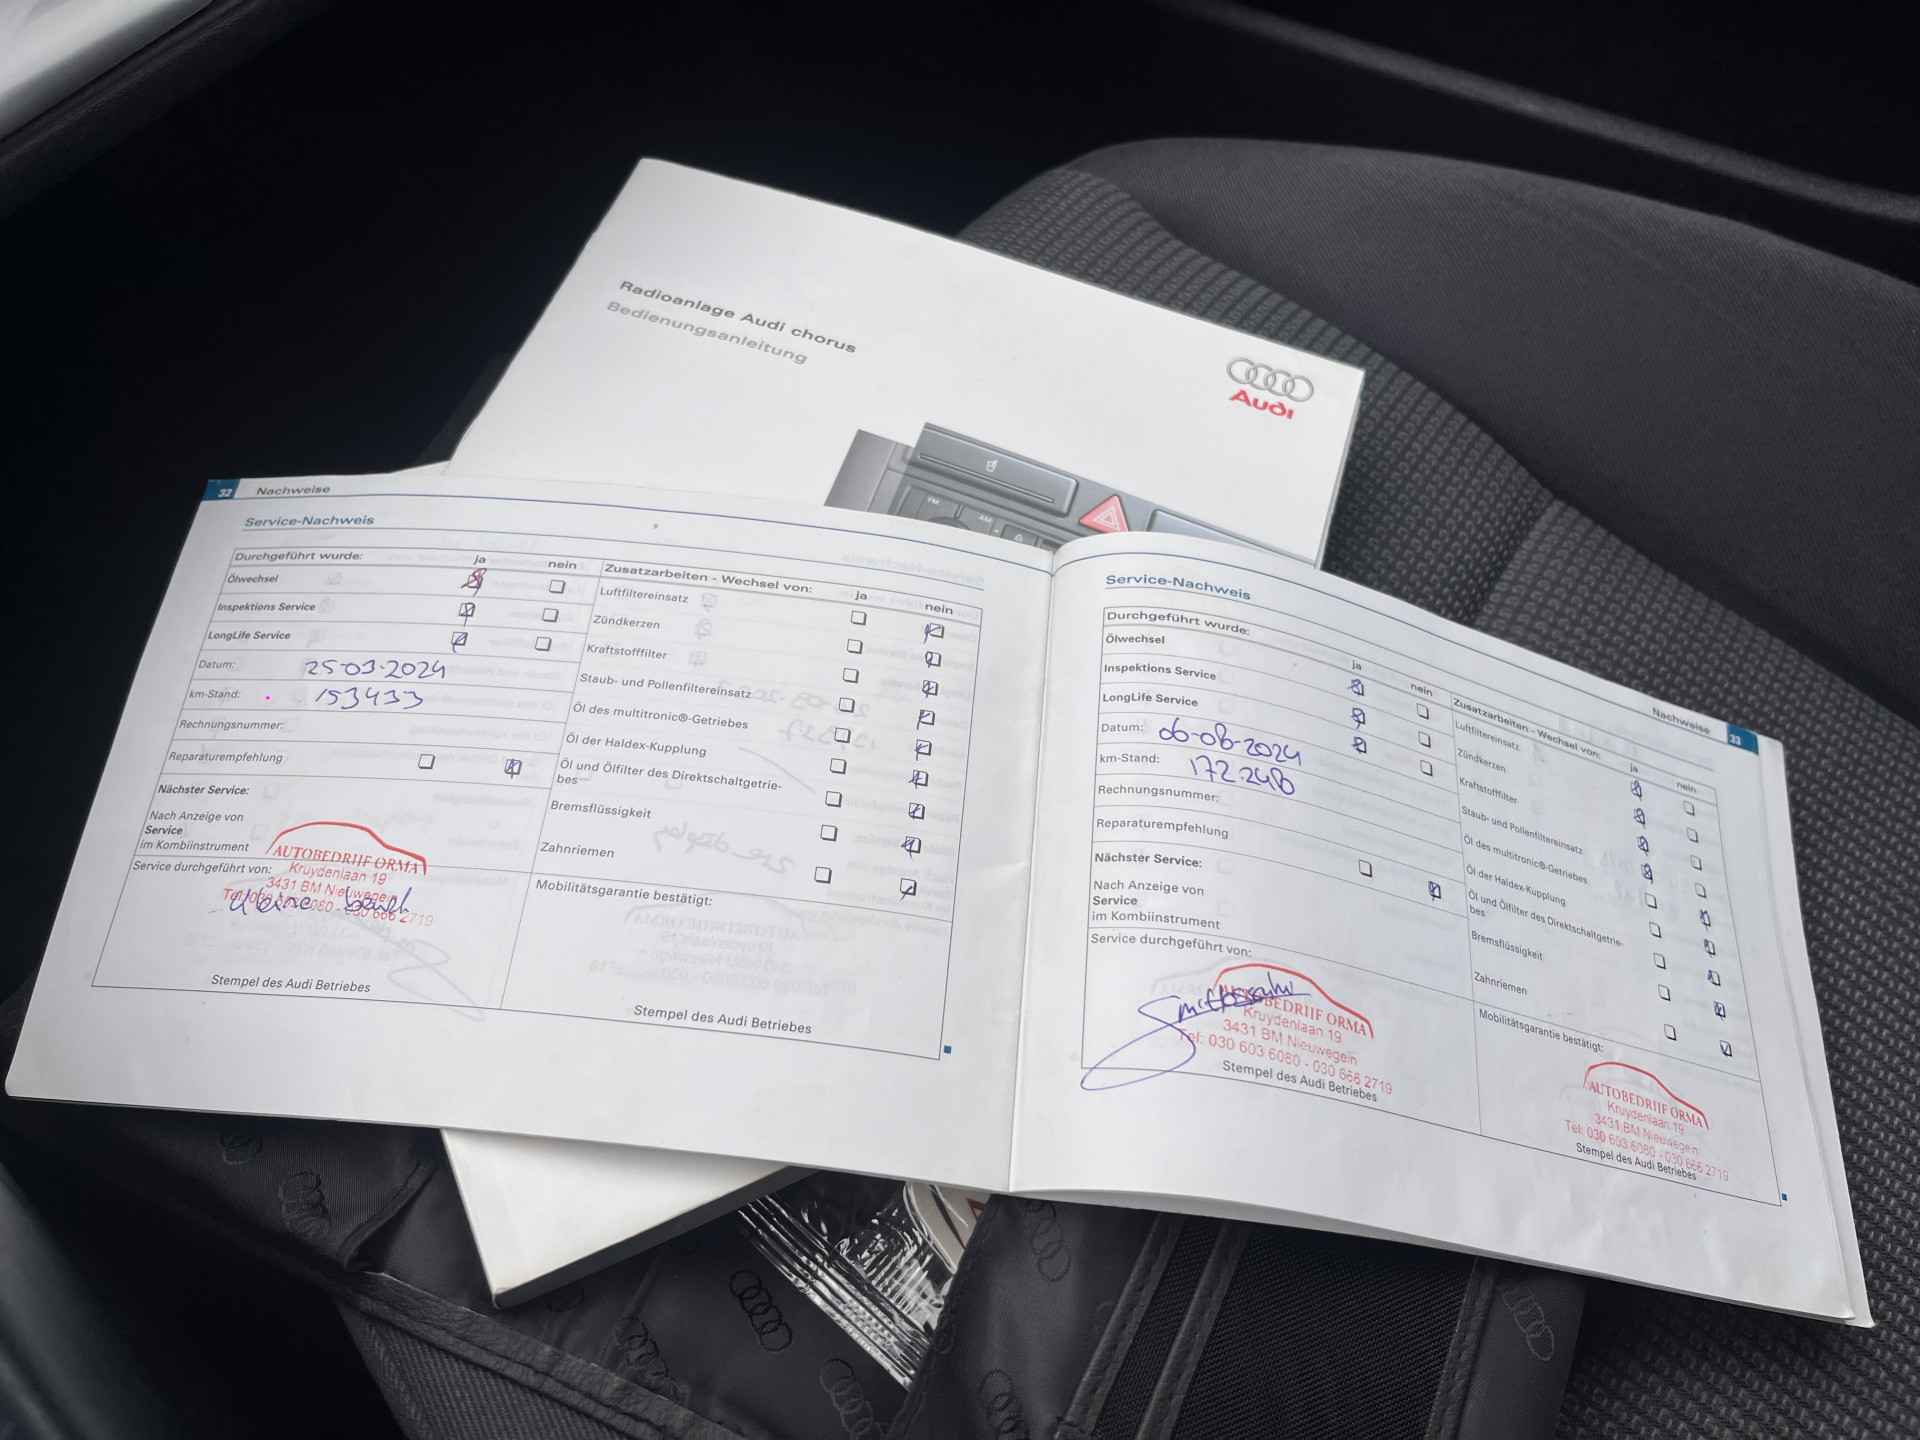 Radioanlage Audi chorus
Bedienungsanleitung
Audi
FM
AM
32 Nachweise
Service-Nachweis
Durchgeführt wurde: ja nein
Ölwechsel
Inspektions Service
LongLife Service
Datum: 25-03-2024
km-Stand: 153433
Rechnungsnummer:
Reparaturempfehlung
Nächster Service:
Nach Anzeige von
Service
im Kombiinstrument
Service durchgeführt von:
AUTOBEDRIJF ORMA
Kruydenlaan 19
3431 BM Nieuwegein
Tel: 030 603 6080 - 030 666 2719
kleine beurt
Stempel des Audi Betriebes
Zusatzarbeiten - Wechsel von: ja nein
Luftfiltereinsatz
Zündkerzen
Kraftstofffilter
Staub- und Pollenfiltereinsatz
Öl des multitronic®-Getriebes
Öl der Haldex-Kupplung
Öl und Ölfilter des Direktschaltgetrie-
bes
Bremsflüssigkeit
Zahnriemen
Mobilitätsgarantie bestätigt:
Stempel des Audi Betriebes
Nachweise 33
Service-Nachweis
Durchgeführt wurde: ja nein
Ölwechsel
Inspektions Service
LongLife Service
Datum: 06-08-2024
km-Stand: 172.248
Rechnungsnummer:
Reparaturempfehlung
Nächster Service:
Nach Anzeige von
Service
im Kombiinstrument
Service durchgeführt von:
AUTOBEDRIJF ORMA
Kruydenlaan 19
3431 BM Nieuwegein
Tel: 030 603 6080 - 030 666 2719
Stempel des Audi Betriebes
Zusatzarbeiten - Wechsel von: ja nein
Luftfiltereinsatz
Zündkerzen
Kraftstofffilter
Staub- und Pollenfiltereinsatz
Öl des multitronic®-Getriebes
Öl der Haldex-Kupplung
Öl und Ölfilter des Direktschaltgetrie-
bes
Bremsflüssigkeit
Zahnriemen
Mobilitätsgarantie bestätigt:
AUTOBEDRIJF ORMA
Kruydenlaan 19
3431 BM Nieuwegein
Tel: 030 603 6080 - 030 666 2719
Stempel des Audi Betriebes